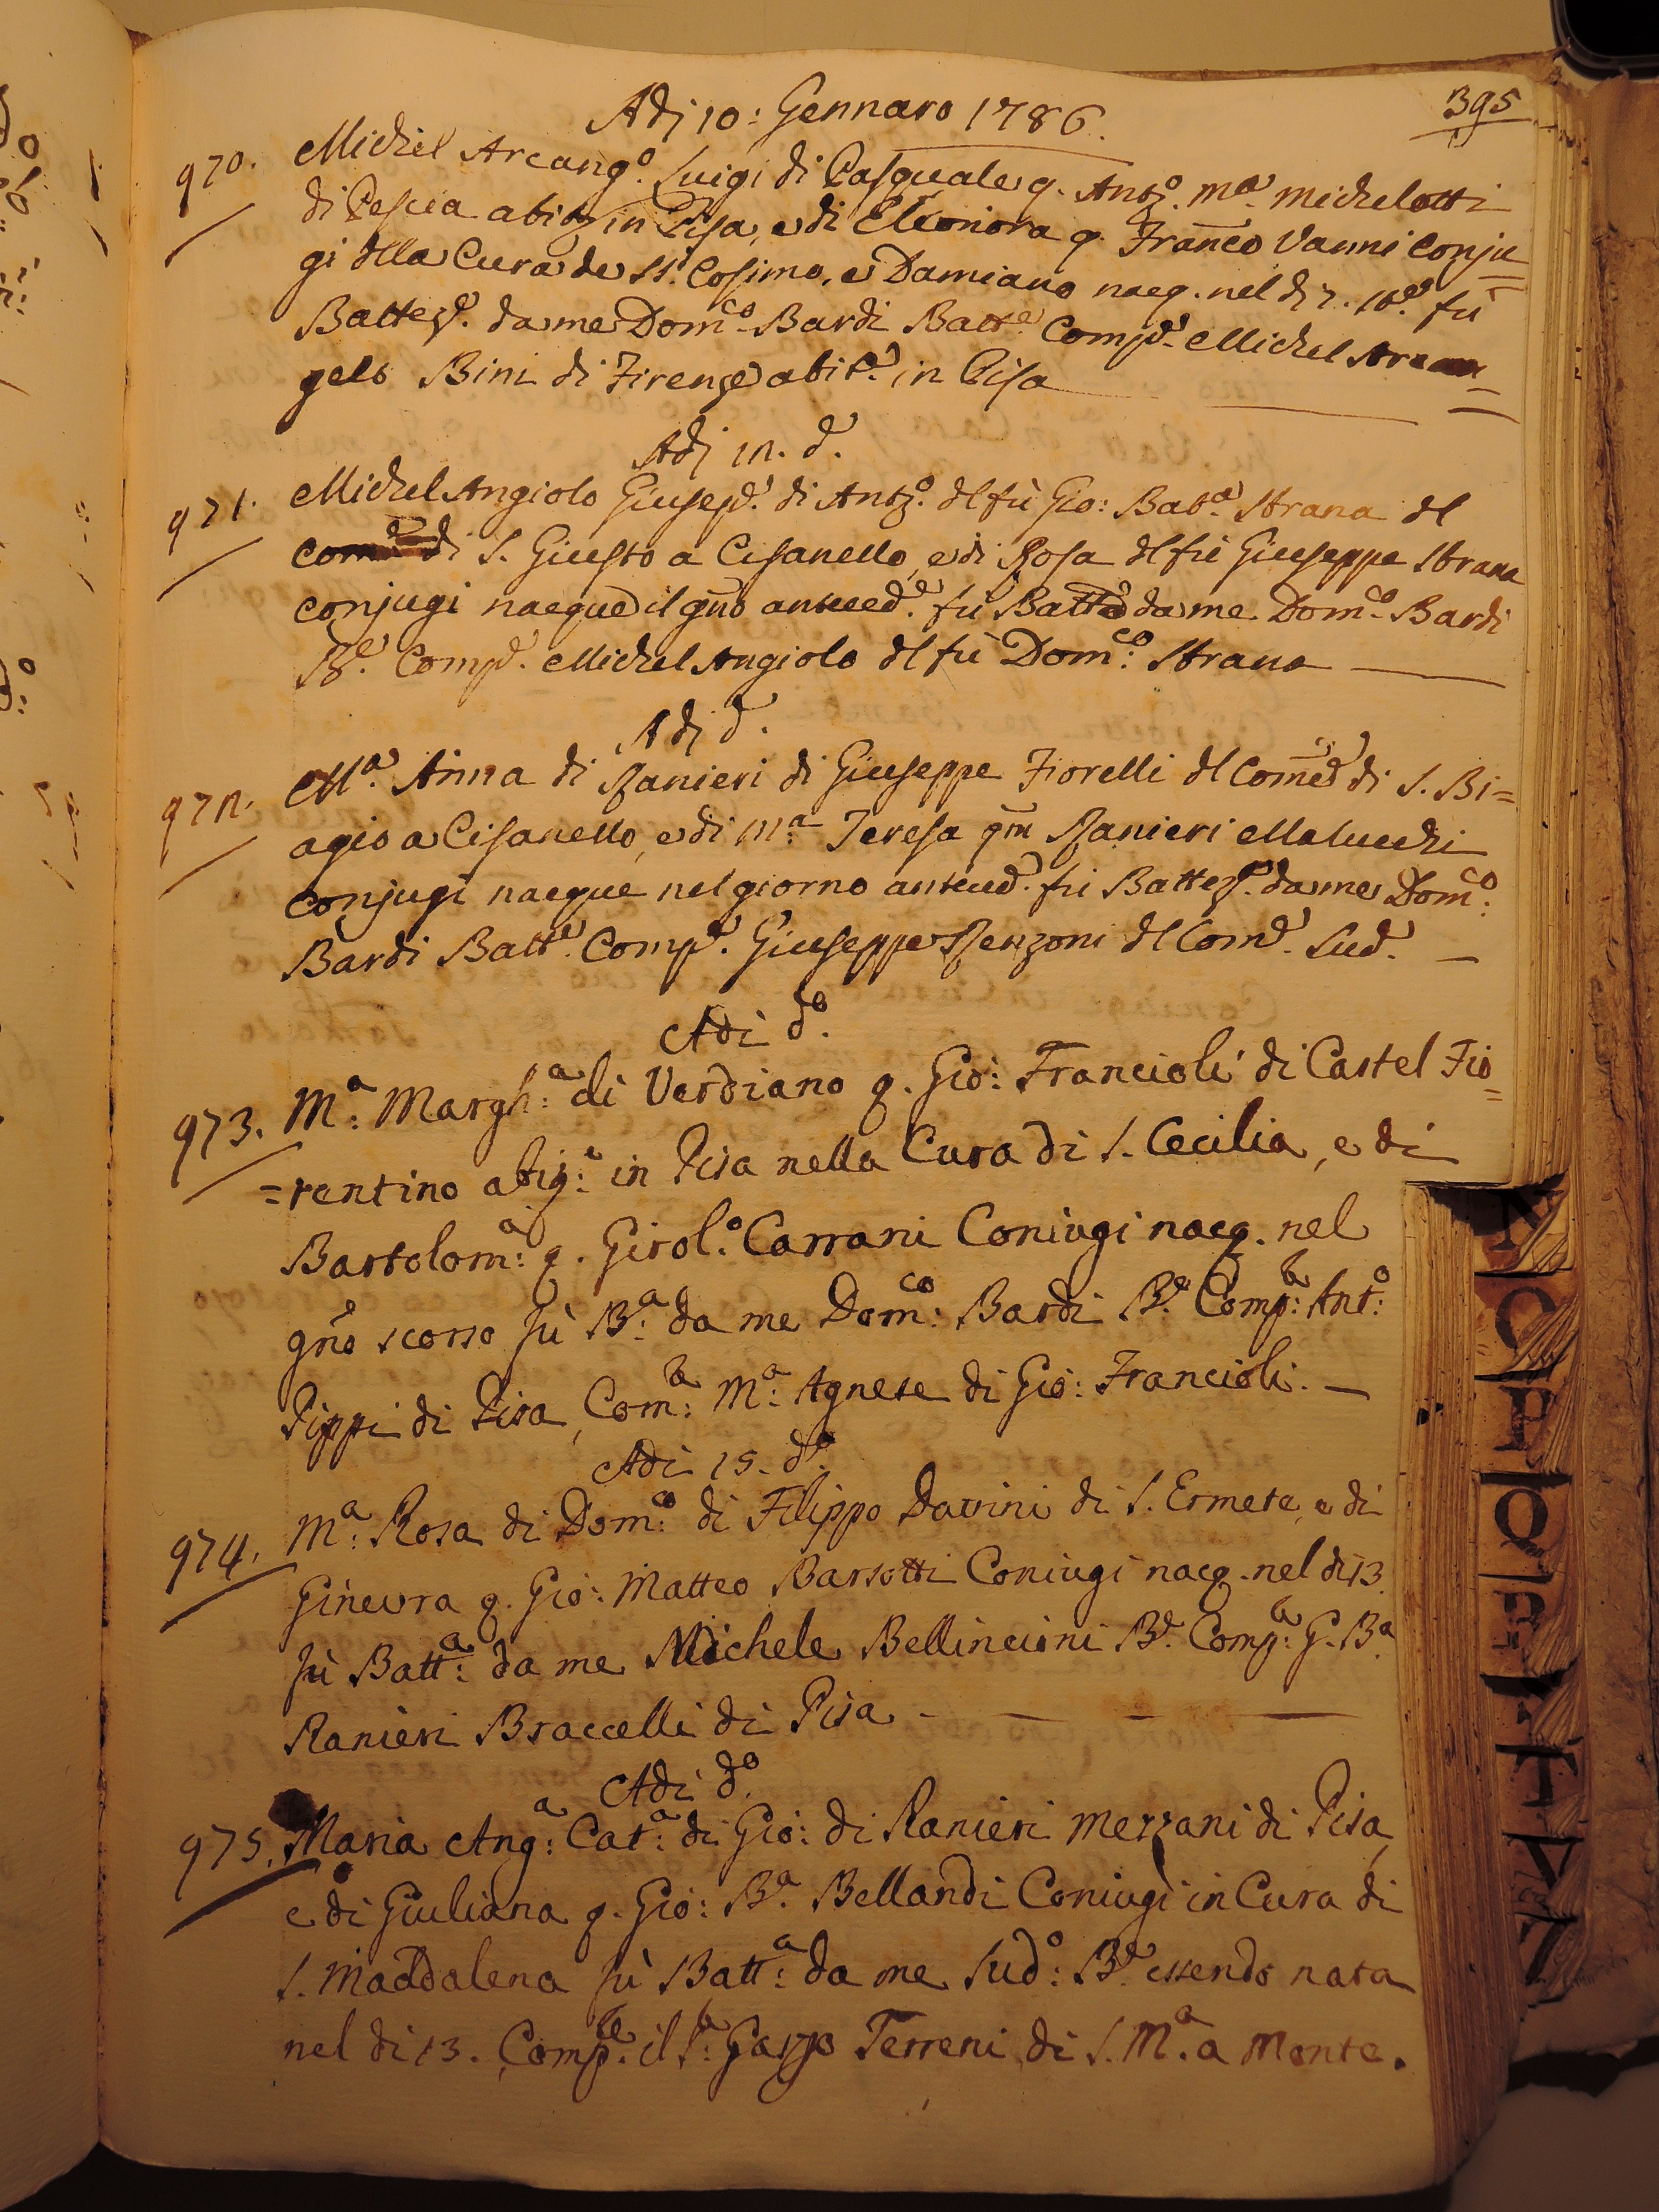 395
Adj 10: Gennaro 1786.
970. Michel Arcang.o Luigi di Pasquale q. Ant.o M.a Michelotti
di Pescia abit. in Pisa, e di Eleonora q. Franco Vanni Conju=
gi dlla Cura de SS. Cosimo, e Damiano nacq. nel dì 7. fù
Battez. da me Dom.co Bardi Batt.e Comp.e Michel Arcan=
gelo Bini di Firenze abit.e in Pisa
Adj 12. d.
971. Michel Angiolo Giusep.e di Ant.o dl fù Gio: Bat.a Strana dl
Com.e di S. Giusto a Cisanello, e di Rosa dl fù Giuseppe Strana
conjugi nacque il gno anteced.e fù Batt.o da me Dom.co Bardi
B.e Comp.e Michel Angiolo dl fù Dom.co: Strana
Adj d.
972. M.a Anna di Ranieri di Giuseppe Fiorelli dl Come di S. Bi=
agio a Cisanello, e di M.a Teresa qm Ranieri Malucchi
conjugi nacque nel giorno anteced. fù Battez. da me Dom.co:
Bardi Batt.e Comp.e Giuseppe Renzoni dl Com.e Sud.
Adì d.o
973. M.a: Margh.a: di Verdiano q. Gio: Francioli di Castel Fio=
=rentino abiz.e: in Pisa nella Cura di S. Cecilia, e di
Bartolom.a: q. Girol.o: Carrani Coniugi nacq. nel
gno scorso fù B.a da me Dom.co: Bardi B.e Comp.e: Ant.o:
Pippi di Pisa, Com.e: M.a: Agnese di Gio: Francioli.
Adì 15. d.o
974. M.a: Rosa di Dom.co: di Filippo Davini di S. Ermete, e di
Ginevra q. Gio: Matteo Barsotti Coniugi nacq. nel dì 13.
fù Batt.a: da me Michele Bellincioni B.e Comp.e: G. B.a
Ranieri Braccelli di Pisa
Adì d.o
975. Maria Ang.a: Cat.a: di Gio: di Ranieri Mezzani di Pisa,
e di Giuliana q. Gio: B.a Bellandi Coniugi in Cura di
S. Maddalena fù Batt.a: da me Sud.o: B.e essendo nata
nel dì 13. Comp.e il S.e: Gasp.o Terreni di S. M.a a Monte.
N
O
P
Q
R
S
T
V
Z